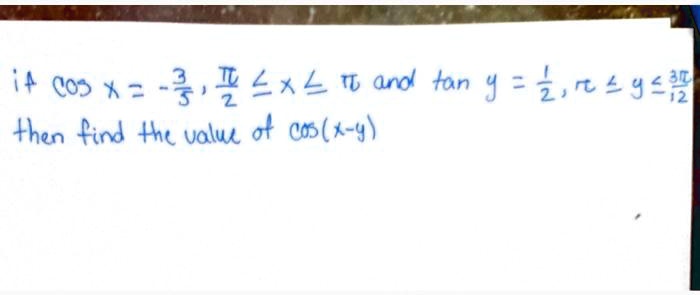 if cos x = -3/5, π/2 ≤ x ≤ π and tan y = 1/2, π ≤ y ≤ 3π/12
then find the value of cos(x-y)